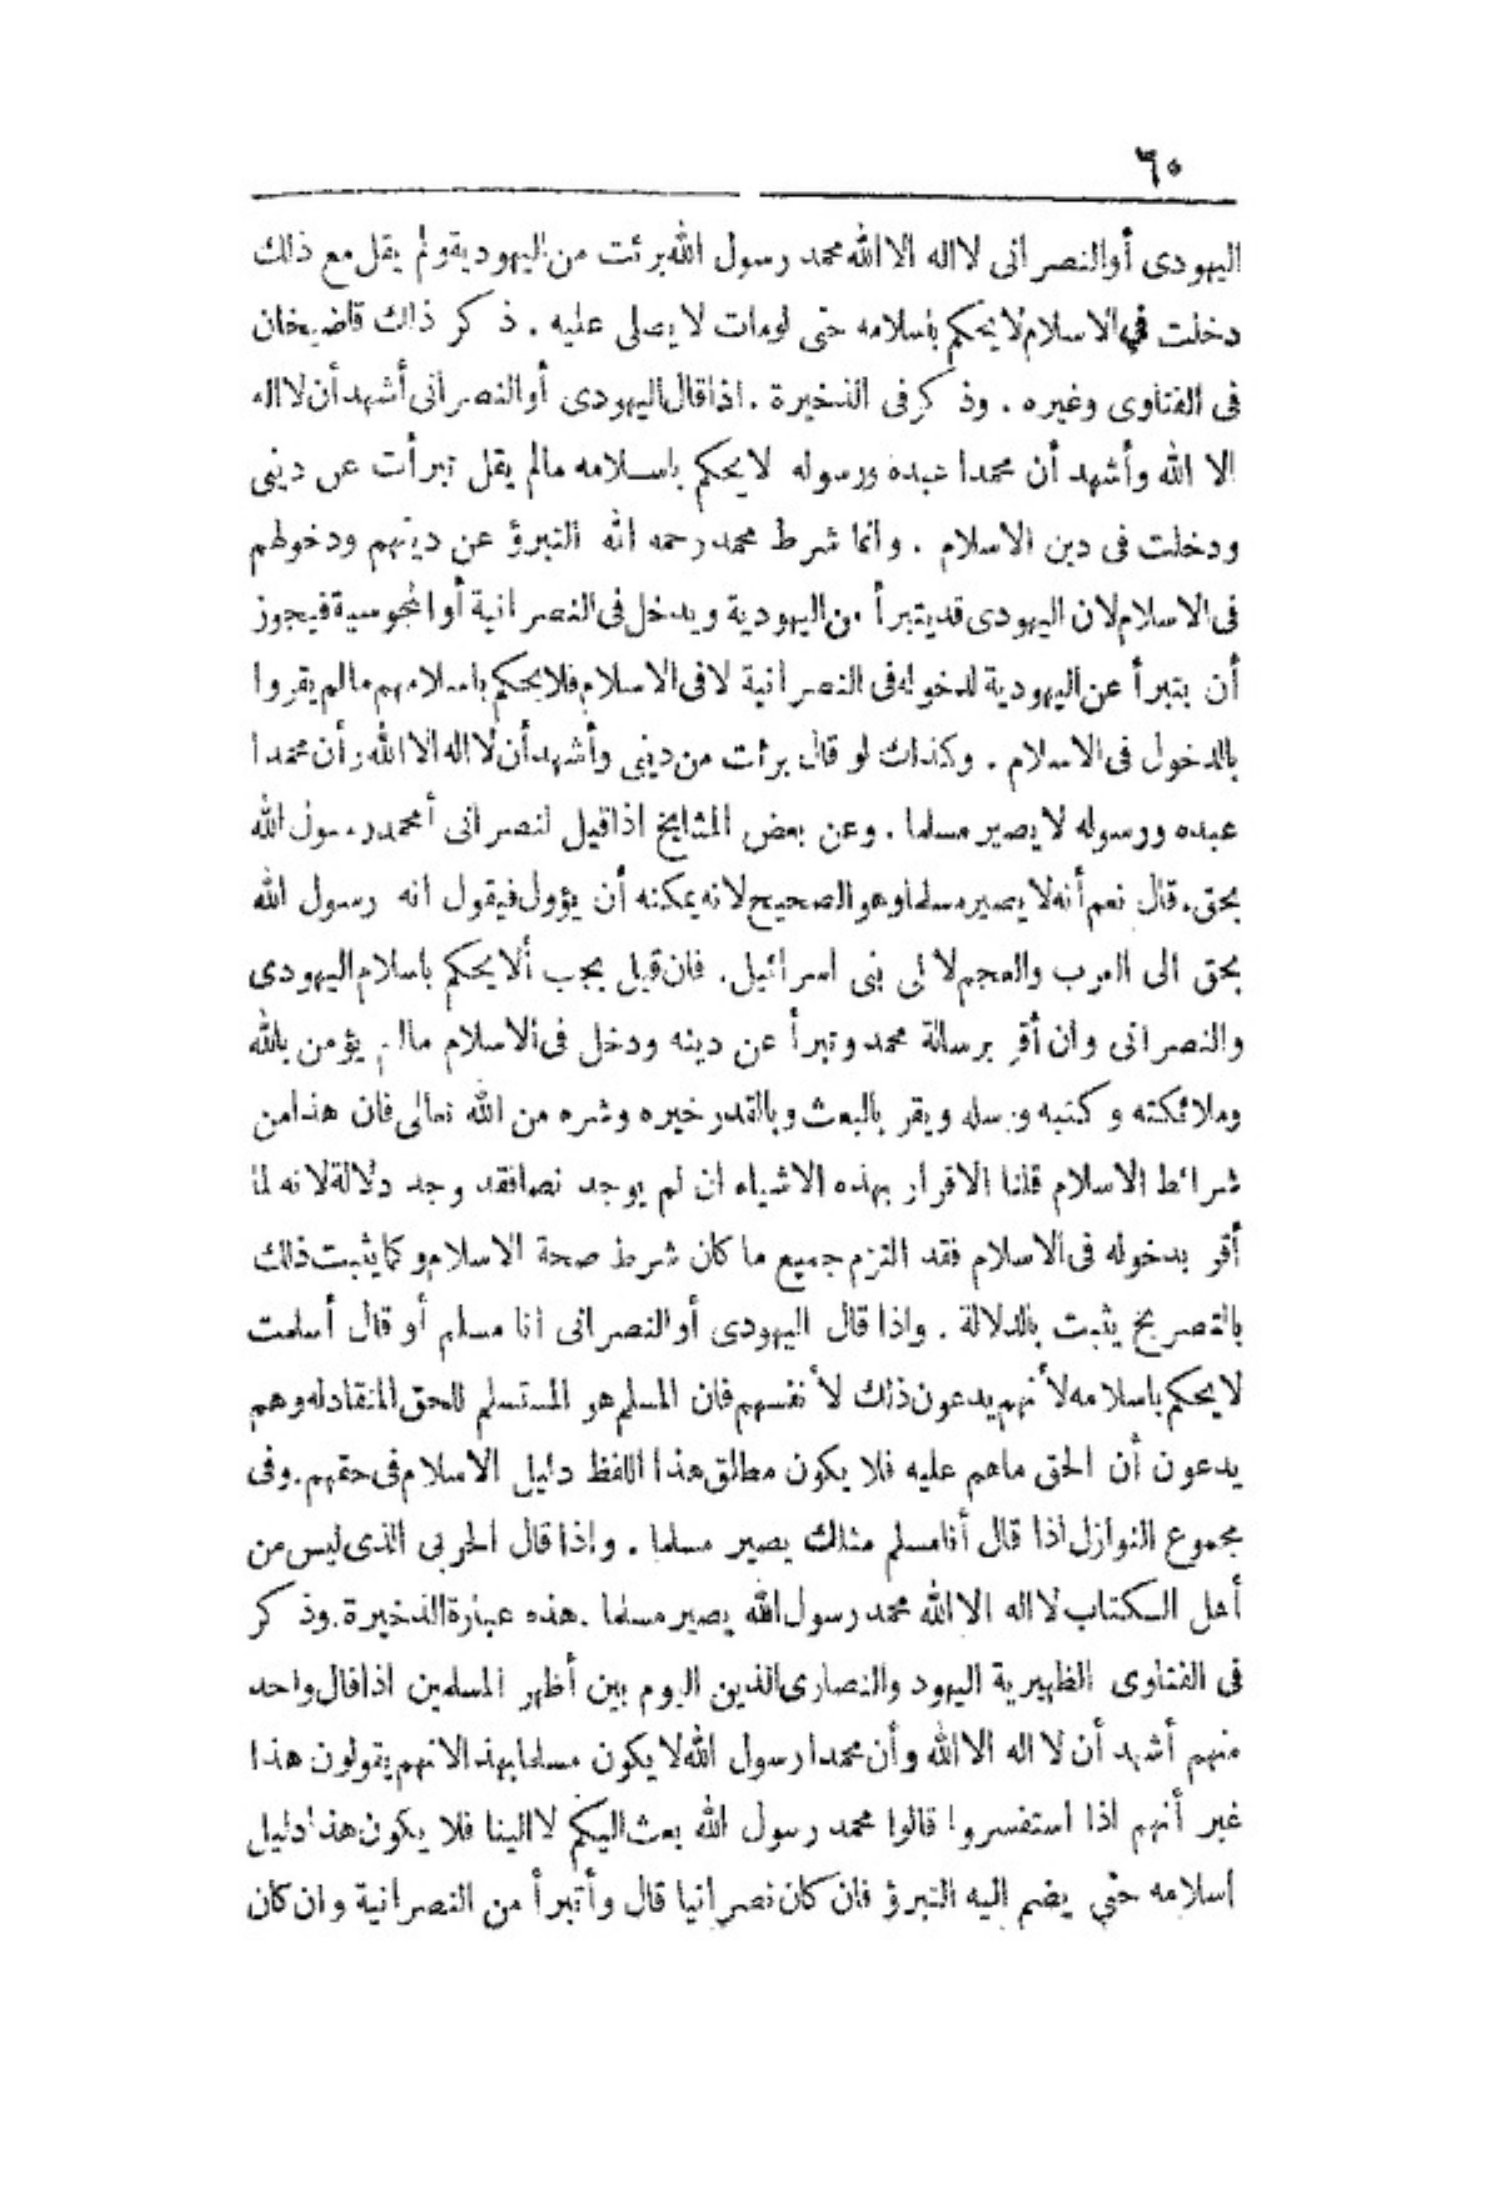 ٦٥
اليهودى أوالنصرانى لااله الاالله محمد رسول الله برئت من اليهودية ولم يقل مع ذلك
دخلت فى الاسلام لا يحكم باسلامه حتى لومات لا يصلى عليه . ذكر ذلك قاضيخان
فى الفتاوى وغيره . وذكر فى الذخيرة . اذا قال اليهودى أو النصرانى أشهد أن لااله
الا الله وأشهد أن محمدا عبده ورسوله لا يحكم باسلامه مالم يقل تبرأت عن دينى
ودخلت فى دين الاسلام . وانما شرط محمد رحمه الله التبرؤ عن دينهم ودخولهم
فى الاسلام لان اليهودى قد يتبرأ من اليهودية ويدخل فى النصرانية أوالمجوسية فيجوز
أن يتبرأ عن اليهودية لدخوله فى النصرانية لا فى الاسلام فلا يحكم باسلامهم مالم يقروا
بالدخول فى الاسلام . وكذلك لو قال برئت من دينى وأشهد أن لااله الا الله وأن محمدا
عبده ورسوله لا يصير مسلما . وعن بعض المشايخ اذا قيل لنصرانى أمحمد رسول الله
بحق . قال نعم أنه لا يصير مسلما وهو الصحيح لانه يمكنه أن يؤول فيقول انه رسول الله
بحق الى العرب والعجم لا الى بنى اسرائيل . فان قيل يجب ألا يحكم باسلام اليهودى
والنصرانى وان أقر برسالة محمد وتبرأ عن دينه ودخل فى الاسلام مالم يؤمن بالله
وملائكته وكتبه ورسله ويقر بالبعث وبالقدر خيره وشره من الله تعالى فان هذا من
شرائط الاسلام قلنا الاقرار بهذه الاشياء ان لم يوجد نصا فقد وجد دلالة لانه لما
أقر بدخوله فى الاسلام فقد التزم جميع ما كان شرط صحة الاسلام وكما يثبت ذلك
بالتصريح يثبت بالدلالة . واذا قال اليهودى أو النصرانى انا مسلم أو قال أسلمت
لا يحكم باسلامه لأنهم يدعون ذلك لأنفسهم فان المسلم هو المستسلم للحق المنقاد له وهم
يدعون أن الحق ماهم عليه فلا يكون مطلق هذا اللفظ دليل الاسلام فى حقهم . وفى
مجموع النوازل اذا قال أنا مسلم مثلك يصير مسلما . واذا قال الحربى الذى ليس من
أهل الكتاب لا اله الا الله محمد رسول الله يصير مسلما . هذه عبارة الذخيرة . وذكر
فى الفتاوى الظهيرية اليهود والنصارى الذين اليوم بين أظهر المسلمين اذا قال واحد
منهم أشهد أن لا اله الا الله وأن محمدا رسول الله لا يكون مسلما بهذا لانهم يقولون هذا
غير أنهم اذا استفسروا قالوا محمد رسول الله بعث اليكم لا الينا فلا يكون هذا دليل
اسلامه حتى يضم اليه التبرؤ فان كان نصرانيا قال وأتبرأ من النصرانية وان كان